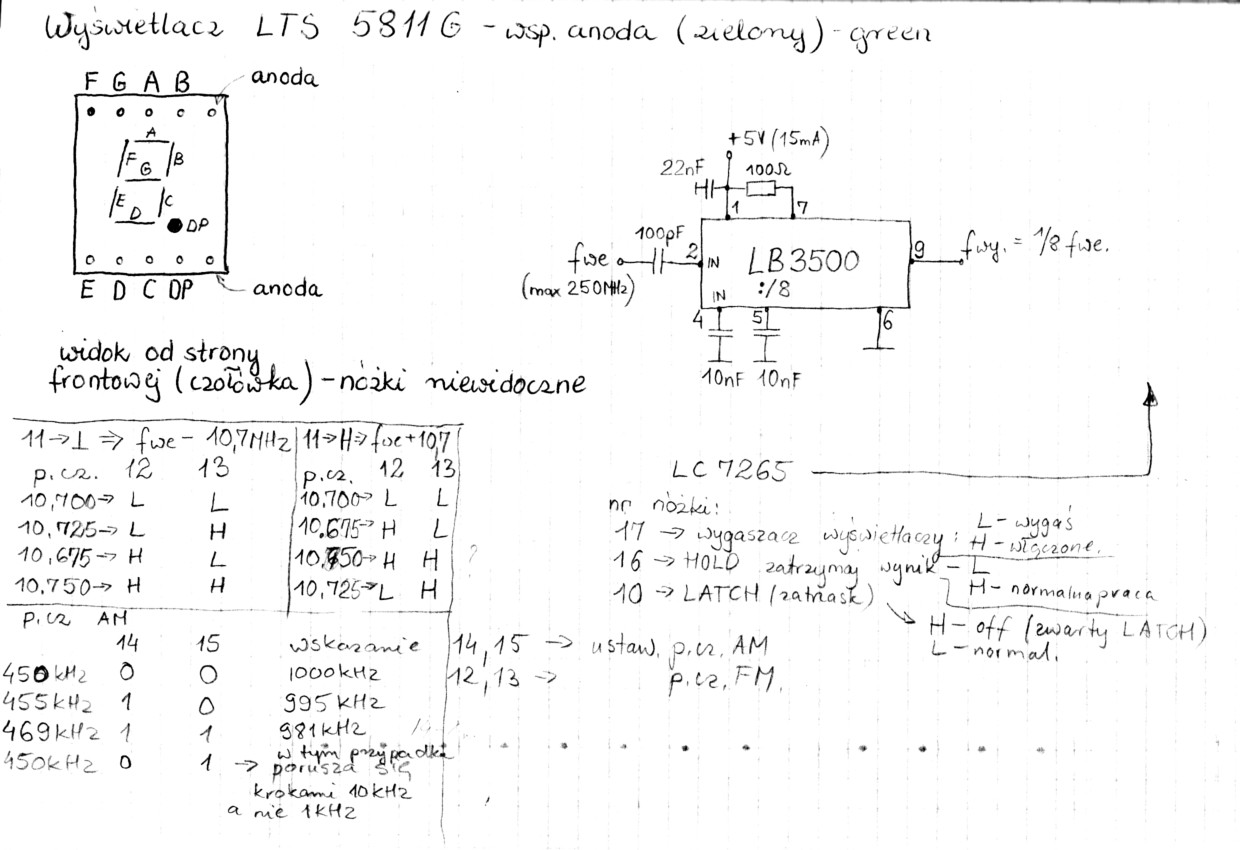 Wyświetlacz LTS 5811G - wsp. anoda (zielony) - green
F G A B anoda
A
F B
G
E C
D
DP
E D C DP anoda
widok od strony
frontowej (czołówka) - nóżki niewidoczne
+5V (15mA)
22nF 100Ω
1 7
100pF
fwe 2 IN LB3500 9 fwy. = 1/8 fwe.
(max 250MHz) :/8
IN
4 5 6
10nF 10nF
11→L ⇒ fwe - 10,7MHz
p.cz. 12 13
10,700→ L L
10,725→ L H
10,675→ H L
10,750→ H H
11→H⇒ fwe+10,7
p.cz. 12 13
10,700→ L L
10,675→ H L
10,750→ H H
10,725→ L H
?
p.cz AM
14 15 wskazanie
450kHz 0 0 1000kHz
455kHz 1 0 995kHz
469kHz 1 1 981kHz
450kHz 0 1 → w tym przypadku
porusza się
krokami 10kHz
a nie 1kHz
LC 7265
nr nóżki:
17 → wygaszacz wyświetlaczy: L - wygaś
H - włączone.
16 → HOLD zatrzymaj wynik - L
H - normalna praca
10 → LATCH (zatrzask)
H - off (zwarty LATCH)
L - normal.
14,15 → ustaw. p.cz. AM
12,13 → p.cz. FM.